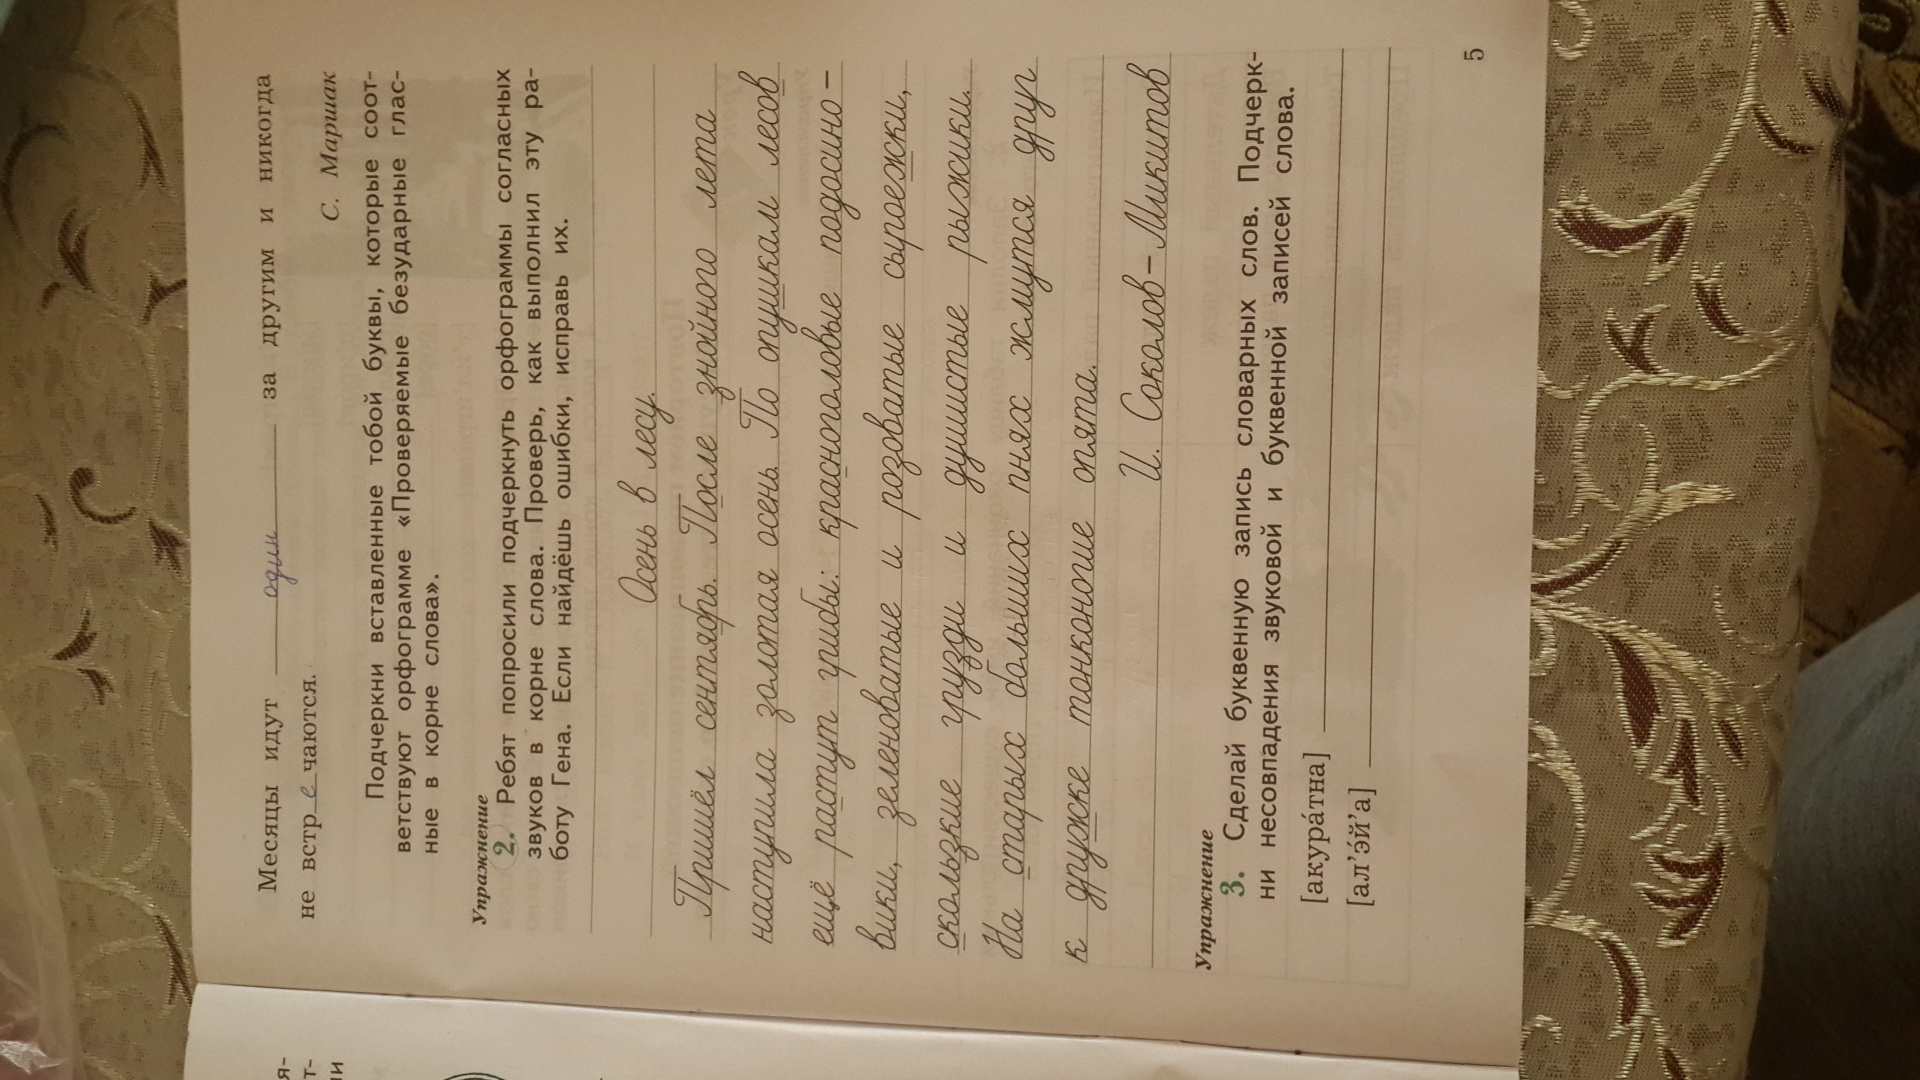 Месяцы идут один за другим и никогда
не встр е чаются.
С. Маршак
Подчеркни вставленные тобой буквы, которые соот-
ветствуют орфограмме «Проверяемые безударные глас-
ные в корне слова».
Упражнение
2. Ребят попросили подчеркнуть орфограммы согласных
звуков в корне слова. Проверь, как выполнил эту ра-
боту Гена. Если найдёшь ошибки, исправь их.
Осень в лесу.
Пришёл сентябрь. После знойного лета
наступила золотая осень. По опушкам лесов
ещё растут грибы: красноголовые подосино-
вики, зеленоватые и розоватые сыроежки,
скользкие грузди и душистые рыжики.
На старых больших пнях жмутся друг
к дружке тонконогие опята.
И. Соколов-Микитов
Упражнение
3. Сделай буквенную запись словарных слов. Подчерк-
ни несовпадения звуковой и буквенной записей слова.
[акура́тна]
[ал’э́й’а]
5
я-
т-
ли